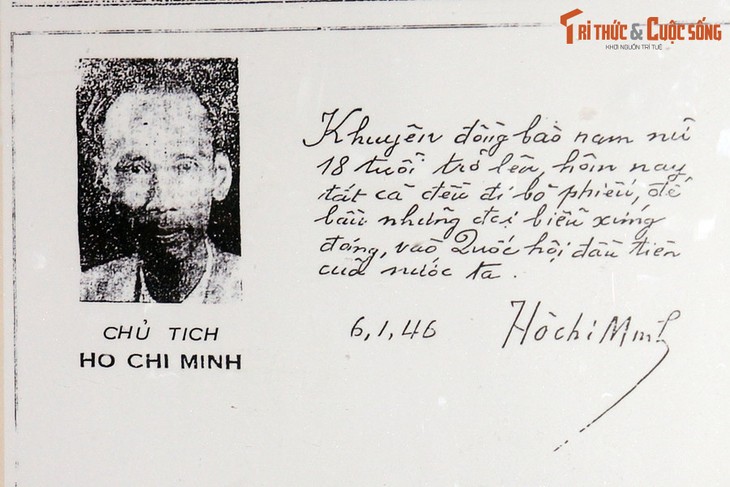 TRI THỨC & CUỘC SỐNG
KHƠI NGUỒN TRÍ TUỆ
Khuyên đồng bào nam nữ
18 tuổi trở lên, hôm nay,
tất cả đều đi bỏ phiếu, để
bầu những đại biểu xứng
đáng, vào Quốc hội đầu tiên
của nước ta.
6, 1, 46
Hồ Chí Minh
CHỦ TỊCH
HO CHI MINH